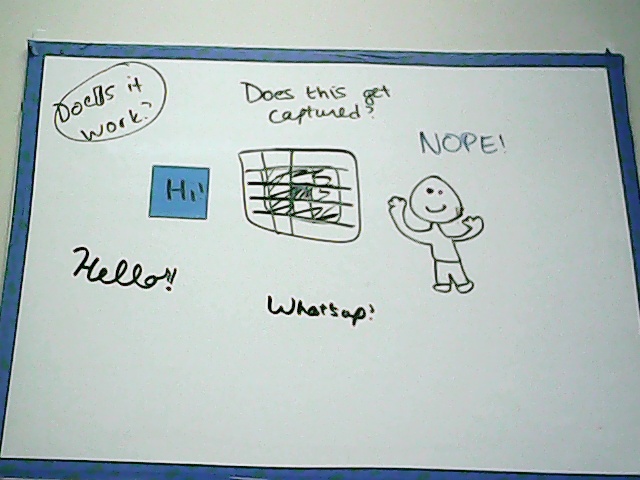 Does it
work?
Does this get
captured?
NOPE!
Hi!
Hello!!
Whatsap?